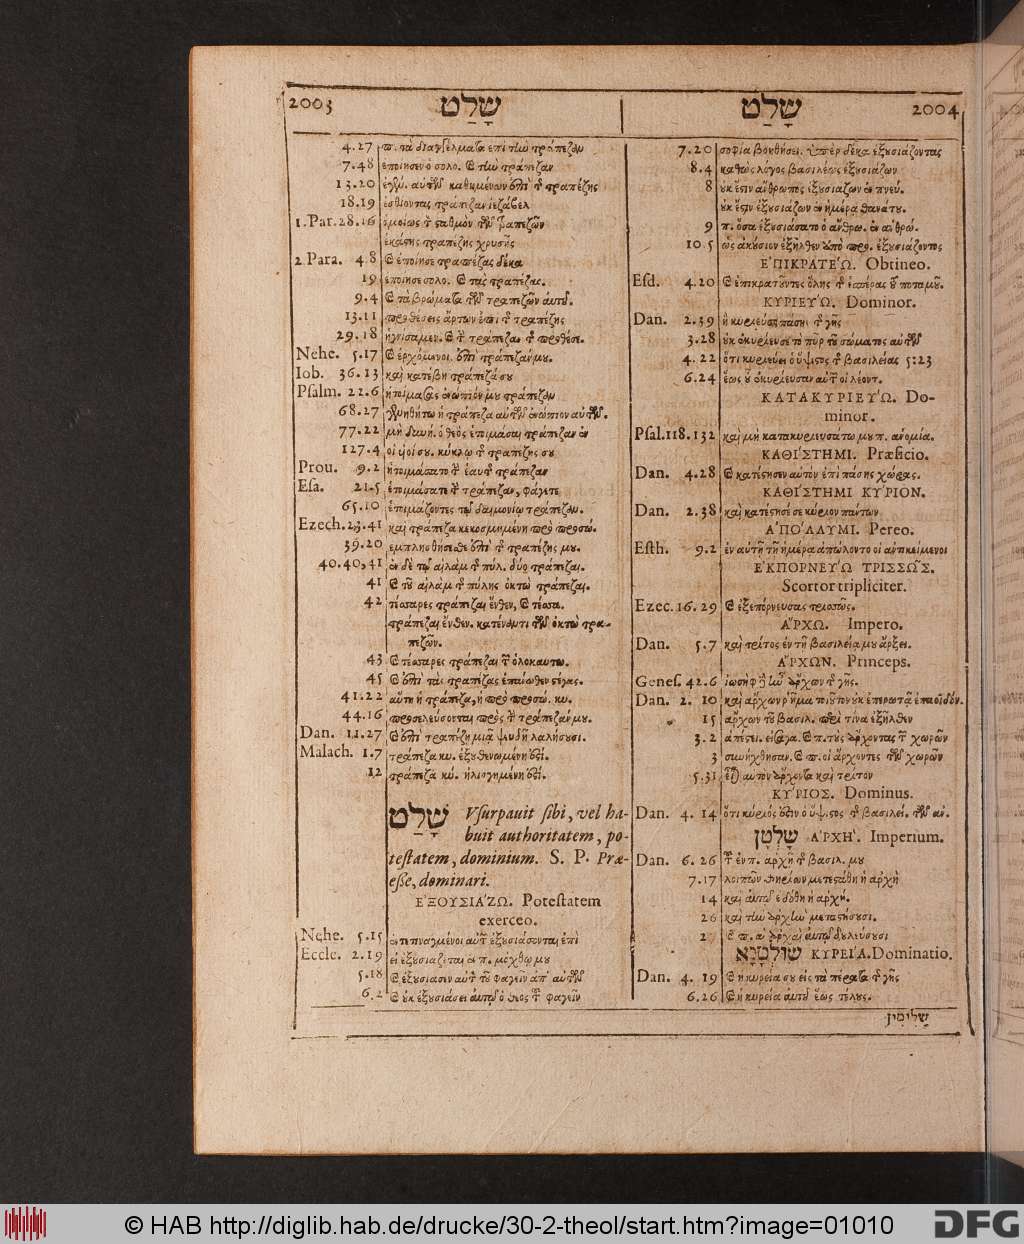 2003 שָׁלַט שָׁלַט 2004
4.27 τὰ ἐπὶ τὴν τράπεζαν
7.48 ἐποίησεν ὁ σολο. τὴν τράπεζαν
13.20 αὐτῶν καθημένων ἐπὶ τ τραπέζης
18.19 ἐσθίοντας τράπεζαν ἰεζάβελ
1.Par.28.16 ὁμοίως τ σταθμὸν τῶν τραπεζῶν
ἑκάστης τραπέζης χρυσῆς
2.Para. 4.8 ἐποίησε τραπέζας δέκα
19 ἐποίησε σολο. τὰς τραπέζας.
9.4 τὰ βρώματα τῶν τραπεζῶν αὐτοῦ.
13.11 προθέσεις ἄρτων ἐπὶ τ τραπέζης
29.18 τ τράπεζαν τ προθέσε.
Nehe. 5.17 ἐρχόμενοι. ἐπὶ τράπεζάν μου.
Iob. 36.13 καὶ κατέβη τράπεζά σου
Psalm. 22.6 ἡτοίμασας ἐνώπιόν μου τράπεζαν
68.27 γενηθήτω ἡ τράπεζα αὐτῶν ἐνώπιον αὐτῶν.
77.22 μὴ δυνή. ὁ θεὸς ἑτοιμάσαι τράπεζαν ἐν
127.4 οἱ υἱοί σου. κύκλῳ τ τραπέζης σου
Prou. 9.2 ἡτοιμάσατο τ ἑαυτ τράπεζαν
Esa. 21.5 ἑτοιμάσατε τ τράπεζαν, φάγετε
65.10 ἑτοιμάζοντες τῷ δαιμονίῳ τράπεζαν.
Ezech.23.41 καὶ τράπεζα κεκοσμημένη πρὸ προσώ.
39.20 ἐμπλησθήσεσθε ἐπὶ τ τραπέζης μου.
40.40,41 ἐν δὲ τῷ αἰλὰμ τ πύλ. δύο τράπεζαι.
41 τοῦ αἰλὰμ τ πύλης ὀκτὼ τράπεζαι.
42 τέσσαρες τράπεζαι ἔνθεν, τέσσα.
τράπεζαι ἔνθεν. κατέναντι τῶν ὀκτὼ τρα-
πεζῶν.
43 τέσσαρες τράπεζαι τ ὁλοκαυτω.
45 ἐπὶ τὰς τραπέζας ἐπάνωθεν στέγας.
41.22 αὕτη ἡ τράπεζα, ἡ πρὸ προσώ. κυ.
44.16 προσελεύσονται πρὸς τ τράπεζάν μου.
Dan. 11.27 ἐπὶ τραπέζῃ μιᾷ ψευδῆ λαλήσουσι.
Malach. 1.7 τράπεζα κυ. ἐξουθενωμένη ἐστί.
12 τράπεζα κυ. ἠλισγημένη ἐστί.
שָׁלַט Vsurpauit sibi, vel ha-
buit authoritatem, po-
testatem, dominium. S. P. Præ-
esse, dominari.
ἘΞΟΥΣΙΆΖΩ. Potestatem
exerceo.
Nehe. 5.15 ἐκτετιναγμένοι αὐτ ἐξουσιάζονται ἐπὶ
Eccle. 2.19 εἰ ἐξουσιάζεται ἐν π. μόχθῳ μου
5.18 ἐξουσίασεν αὐτ τοῦ φαγεῖν ἀπ' αὐτοῦ
6.2 οὐκ ἐξουσιάσει αὐτῷ ὁ θεὸς τ φαγεῖν
7.20 σοφία βοηθήσει. ὑπὲρ δέκα ἐξουσιάζοντας
8.4 καθὼς λόγος βασιλέως ἐξουσιάζων
8 οὐκ ἔστιν ἄνθρωπος ἐξουσιάζων ἐν πνεύ.
οὐκ ἔστιν ἐξουσιάζων ἐν ἡμέρᾳ θανάτου.
9 π. ὅσα ἐξουσιάσατο ὁ ἄνθρω. ἐν ἀνθρώ.
10.5 ὡς ἀκούσιον ἐξῆλθεν ἀπὸ προ. ἐξουσιάζοντος
ἘΠΙΚΡΑΤΈΩ. Obtineo.
Esd. 4.20 ἐπικρατοῦντες ὅλης τ ἑσπέρας τ ποταμοῦ.
ΚΥΡΙΕΎΩ. Dominor.
Dan. 2.39 ἣ κυριεύσει πάσης τ γῆς
3.28 οὐκ ἐκυρίευσε τὸ πῦρ τοῦ σώματος αὐτῶν
4.22 ὅτι κυριεύει ὁ ὕψιστος τ βασιλείας 5:23
6.24 ἕως οὗ ἐκυρίευσαν αὐτ οἱ λέοντ.
ΚΑΤΑΚΥΡΙΕΎΩ. Do-
minor.
Psal.118.132 καὶ μὴ κατακυριευσάτω μου π. ἀνομία.
ΚΑΘΊΣΤΗΜΙ. Præficio.
Dan. 4.28 κατέστησεν αὐτὸν ἐπὶ πάσης χώρας.
ΚΑΘΊΣΤΗΜΙ ΚΎΡΙΟΝ.
Dan. 2.38 καὶ κατέστησέ σε κύριον πάντων
ἈΠΌΛΛΥΜΙ. Pereo.
Esth. 9.2 ἐν αὐτῇ τῇ ἡμέρᾳ ἀπώλοντο οἱ ἀντικείμενοι
ἘΚΠΟΡΝΕΎΩ ΤΡΙΣΣΩ͂Σ.
Scortor tripliciter.
Ezec. 16.29 ἐξεπόρνευσας τρισσῶς.
ἌΡΧΩ. Impero.
Dan. 5.7 καὶ τρίτος ἐν τῇ βασιλείᾳ μου ἄρξει.
ἌΡΧΩΝ. Princeps.
Genes. 42.6 ἰωσὴφ ἦν ἄρχων τ γῆς.
Dan. 2.10 καὶ ἄρχων ῥῆμα τοιοῦτον οὐκ ἐπερωτᾷ ἐπαοιδόν.
15 ἄρχων τοῦ βασιλ. περὶ τίνα ἐξῆλθεν
3.2 π. τοὺς ἄρχοντας τ χωρῶν
3 συνήχθησαν. π. οἱ ἄρχοντες τῶν χωρῶν
5.31 αὐτὸν ἄρχοντα καὶ τρίτον
ΚΎΡΙΟΣ. Dominus.
Dan. 4.14 ὅτι κύριός ἐστιν ὁ ὕψιστος τ βασιλεί. τῶν ἀν.
שָׁלְטָן ἈΡΧΉ. Imperium.
Dan. 6.26 τ ἐν π. ἀρχῇ τ βασιλ. μου
7.17 λοιπῶν θηρίων μετεστάθη ἡ ἀρχὴ
14 καὶ αὐτῷ ἐδόθη ἡ ἀρχή.
26 καὶ τὴν ἀρχὴν μεταστήσουσι.
27 π. αἱ ἀρχαὶ αὐτῷ δουλεύσουσι
שׁוּלְטָנָא ΚΥΡΕΊΑ. Dominatio.
Dan. 4.19 ἡ κυρεία σου εἰς τὰ πέρατα τ γῆς
6.26 ἡ κυρεία αὐτοῦ ἕως τέλους.
שַׁלִּיטִין
© HAB http://diglib.hab.de/drucke/30-2-theol/start.htm?image=01010
DFG